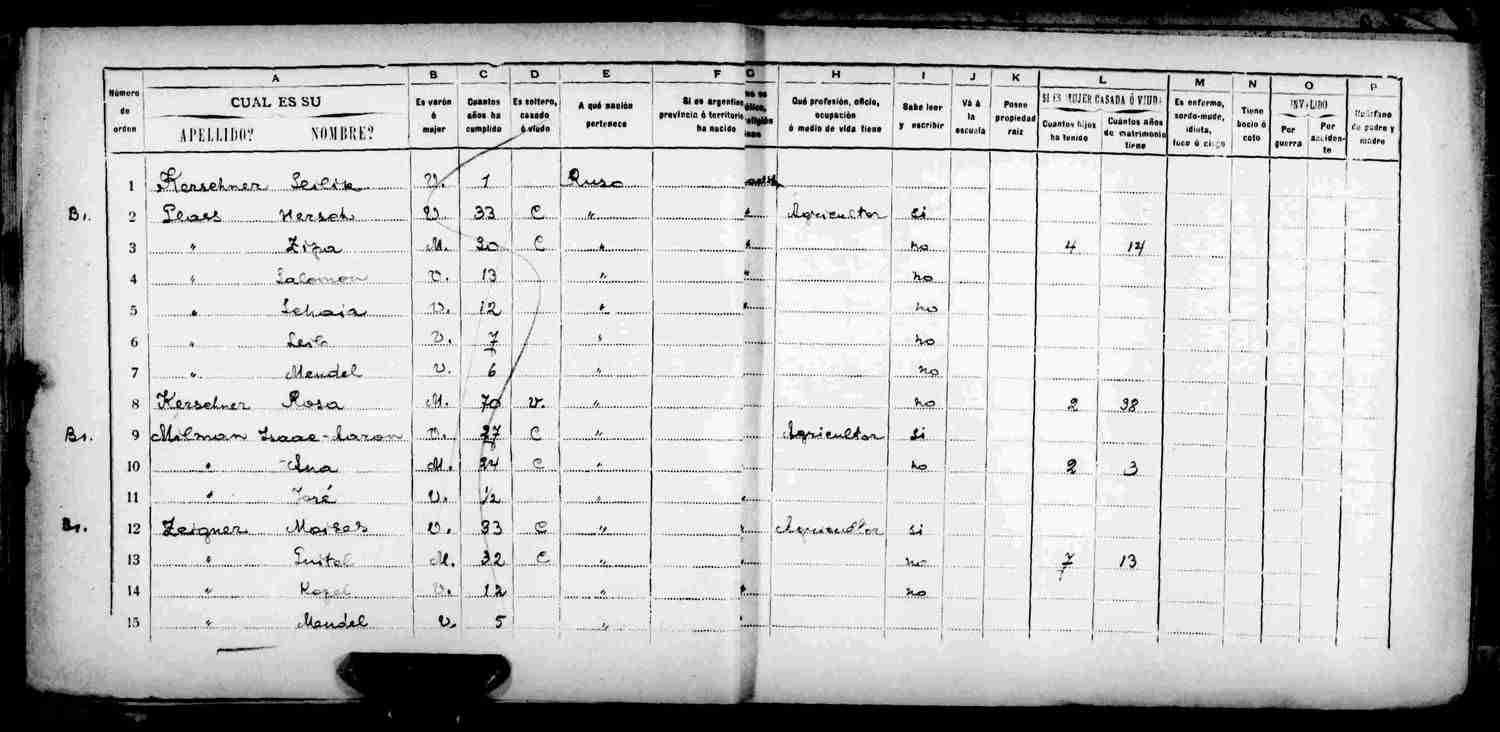 A B C D E F G H I J K L M N O P
Número de orden CUAL ES SU APELLIDO? NOMBRE? Es varón ó mujer Cuantos años ha cumplido Es soltero, casado ó viudo A qué nación pertenece Si es argentino provincia ó territorio ha nacido Qué profesión, oficio, ocupación ó medio de vida tiene Sabe leer y escribir Vá á la escuela Posee propiedad raiz SI ES MUJER CASADA Ó VIUDA Cuantos hijos ha tenido Cuántos años de matrimonio tiene Es enfermo, sordo-mudo, idiota, loco ó ciego Tiene bocio ó coto INVALIDO Por guerra Por acciden-te Huérfano de padre y madre
1 Kerschner V. 1 Ruso
Bs. 2 Hersch V 33 C " " Agricultor si
3 " Zipa M. C " " no 4 12
4 " Salomon V. 13 " " no
5 " Schaia V. 12 " " no
6 " Leib V. 7 " no
7 " Mendel V. 6 " no
8 Kerschner Rosa M. 70 V. " no 2 38
Bs. 9 Milman Isaac-Aaron V. 27 C " Agricultor si
10 " Ana M. 24 C " no 2 3
11 " José V. 1/2 " "
Bs. 12 Zeigner Moises V. 33 C " " Agricultor si
13 " Guitel M. 32 C " " no 7 13
14 " Kopel V. 12 " " no
15 " Mendel V. 5 " "